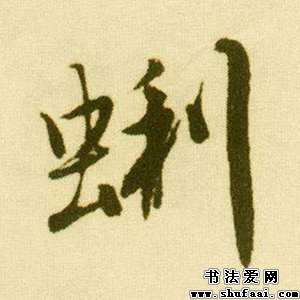 蜊
书法爱网
www.shufaai.com